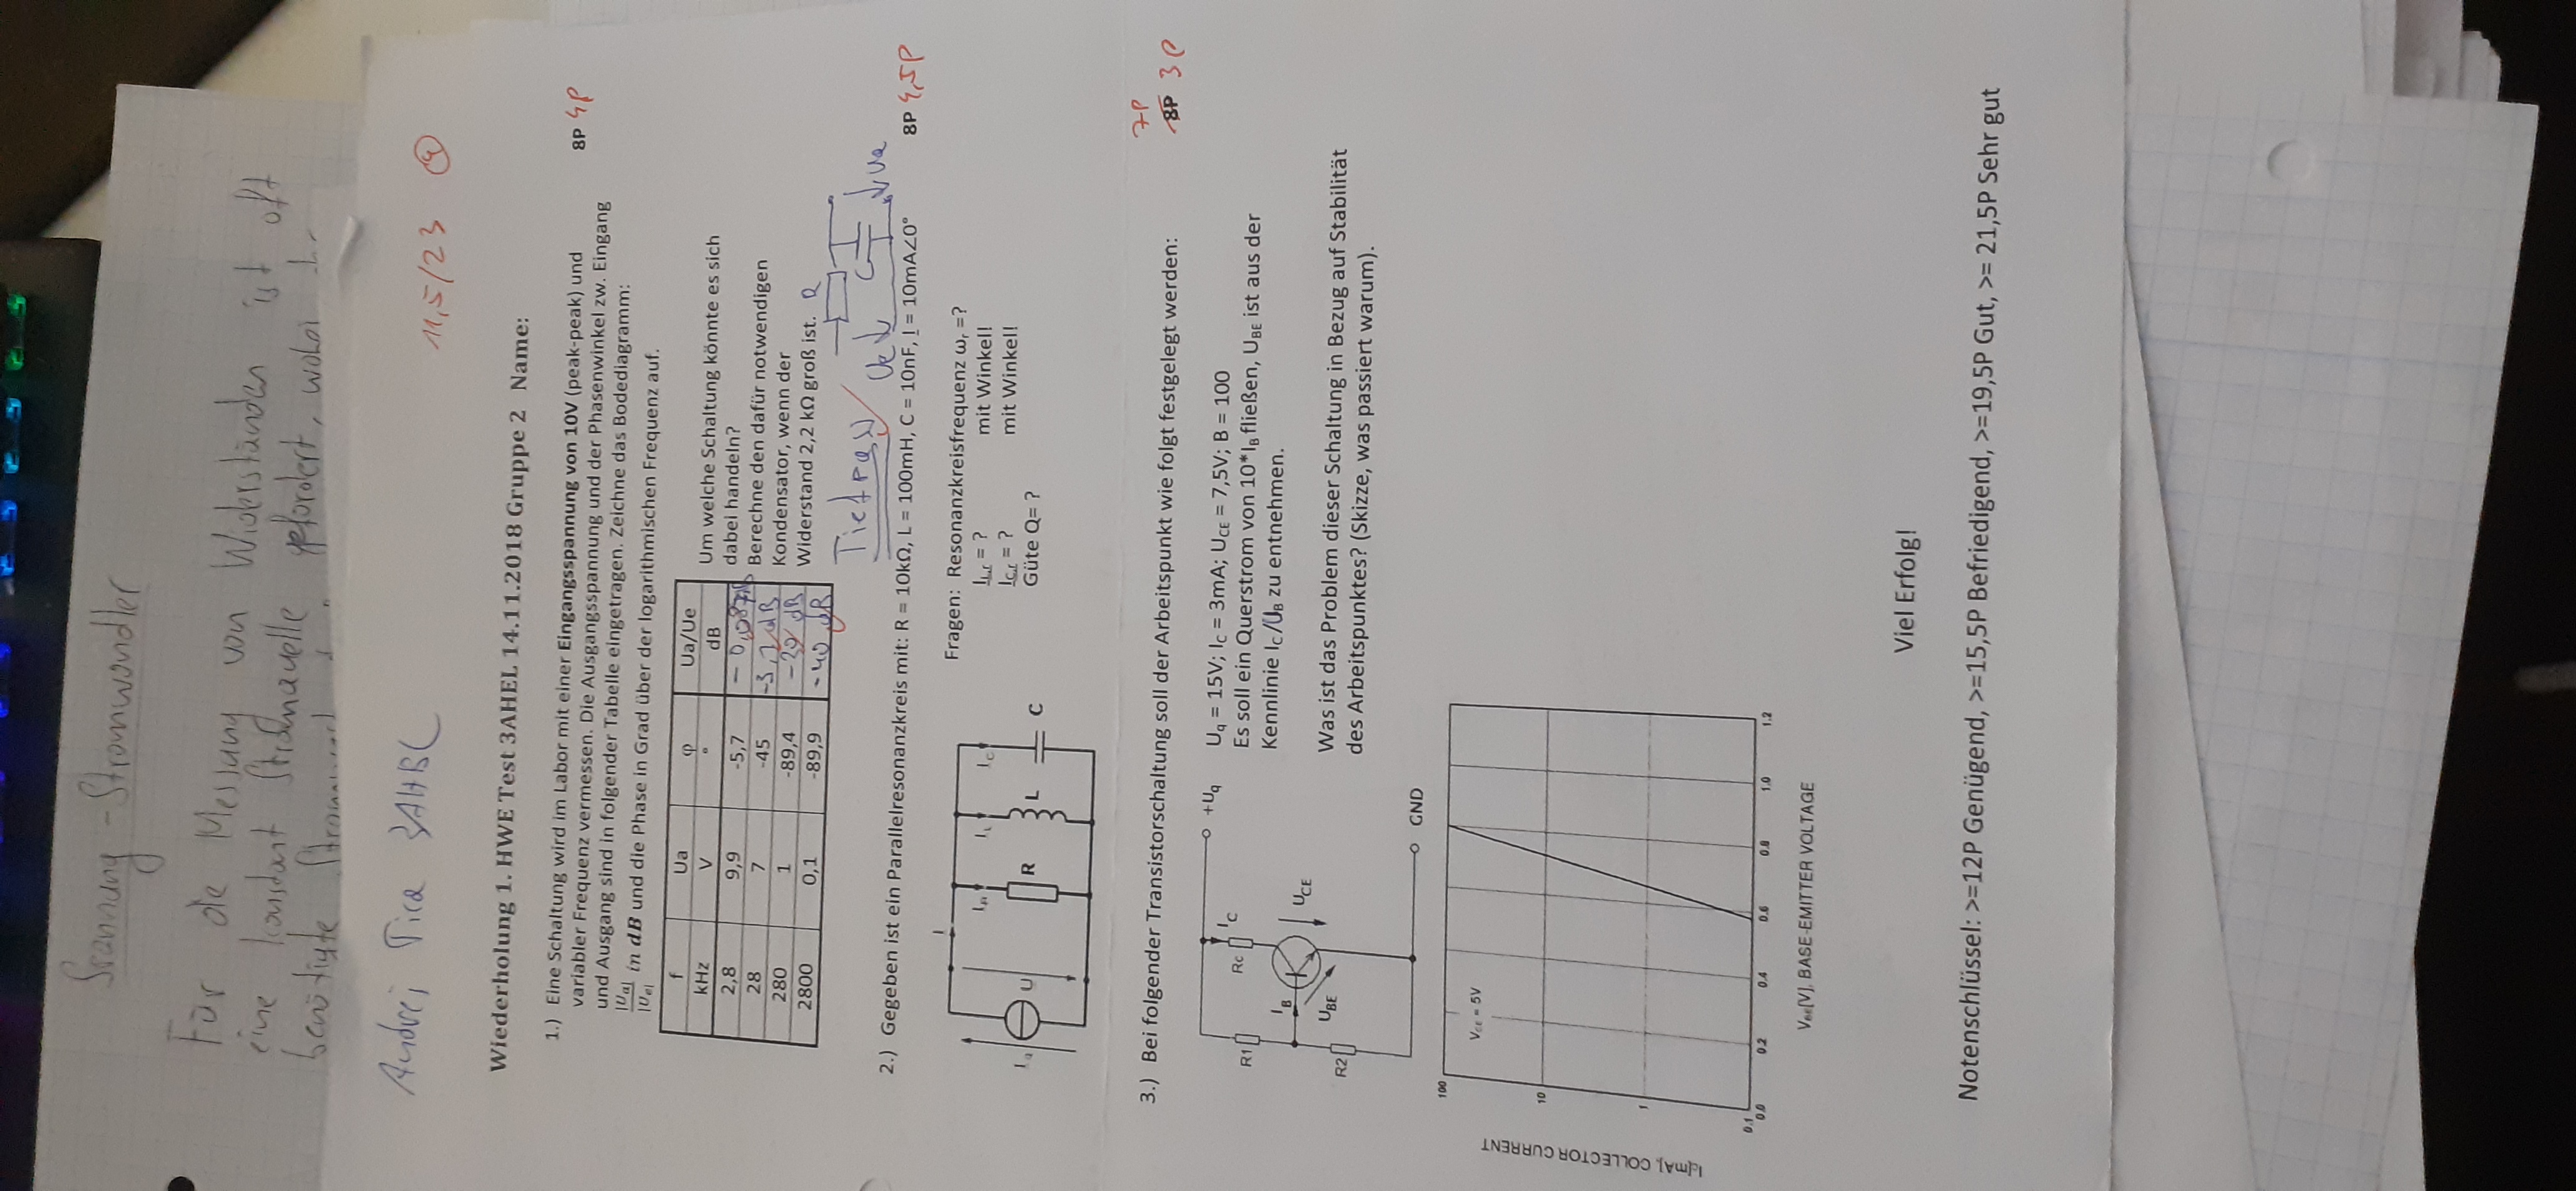 Spannung - Stromwandler
Für die Messung von Widerständen ist oft
eine konstant Stromquelle gefordert, wobei
benötigte
Andrej Tica 3AHBC
11,5/23 4
Wiederholung 1. HWE Test 3AHEL 14.11.2018 Gruppe 2 Name:
1.) Eine Schaltung wird im Labor mit einer Eingangsspannung von 10V (peak-peak) und
8P 4P
variabler Frequenz vermessen. Die Ausgangsspannung und der Phasenwinkel zw. Eingang
und Ausgang sind in folgender Tabelle eingetragen. Zeichne das Bodediagramm:
|Ua|/|Ue| in dB und die Phase in Grad über der logarithmischen Frequenz auf.
f Ua φ Ua/Ue
kHz V ° dB
2,8 9,9 -5,7
28 7 -45 -3,1 dB
280 1 -89,4 -20 dB
2800 0,1 -89,9 -40 dB
Um welche Schaltung könnte es sich
dabei handeln?
Berechne den dafür notwendigen
Kondensator, wenn der
Widerstand 2,2 kΩ groß ist.
R
Tiefpass Ue C Ua
2.) Gegeben ist ein Parallelresonanzkreis mit: R = 10kΩ, L = 100mH, C = 10nF, I = 10mA∠0°
8P 4,5P
Fragen: Resonanzkreisfrequenz ωr =?
ILr = ? mit Winkel!
ICr = ? mit Winkel!
Güte Q= ?
I
IR IL IC
Iq U R L C
3.) Bei folgender Transistorschaltung soll der Arbeitspunkt wie folgt festgelegt werden:
7P
8P 3P
+Uq
R1 RC IC
IB
UBE UCE
R2
GND
Uq = 15V; IC = 3mA; UCE = 7,5V; B = 100
Es soll ein Querstrom von 10*IB fließen, UBE ist aus der
Kennlinie IC/UB zu entnehmen.
Was ist das Problem dieser Schaltung in Bezug auf Stabilität
des Arbeitspunktes? (Skizze, was passiert warum).
100
VCE = 5V
10
1
0.1
IC[mA], COLLECTOR CURRENT
0.0 0.2 0.4 0.6 0.8 1.0 1.2
VBE[V], BASE-EMITTER VOLTAGE
Viel Erfolg!
Notenschlüssel: >=12P Genügend, >=15,5P Befriedigend, >=19,5P Gut, >= 21,5P Sehr gut